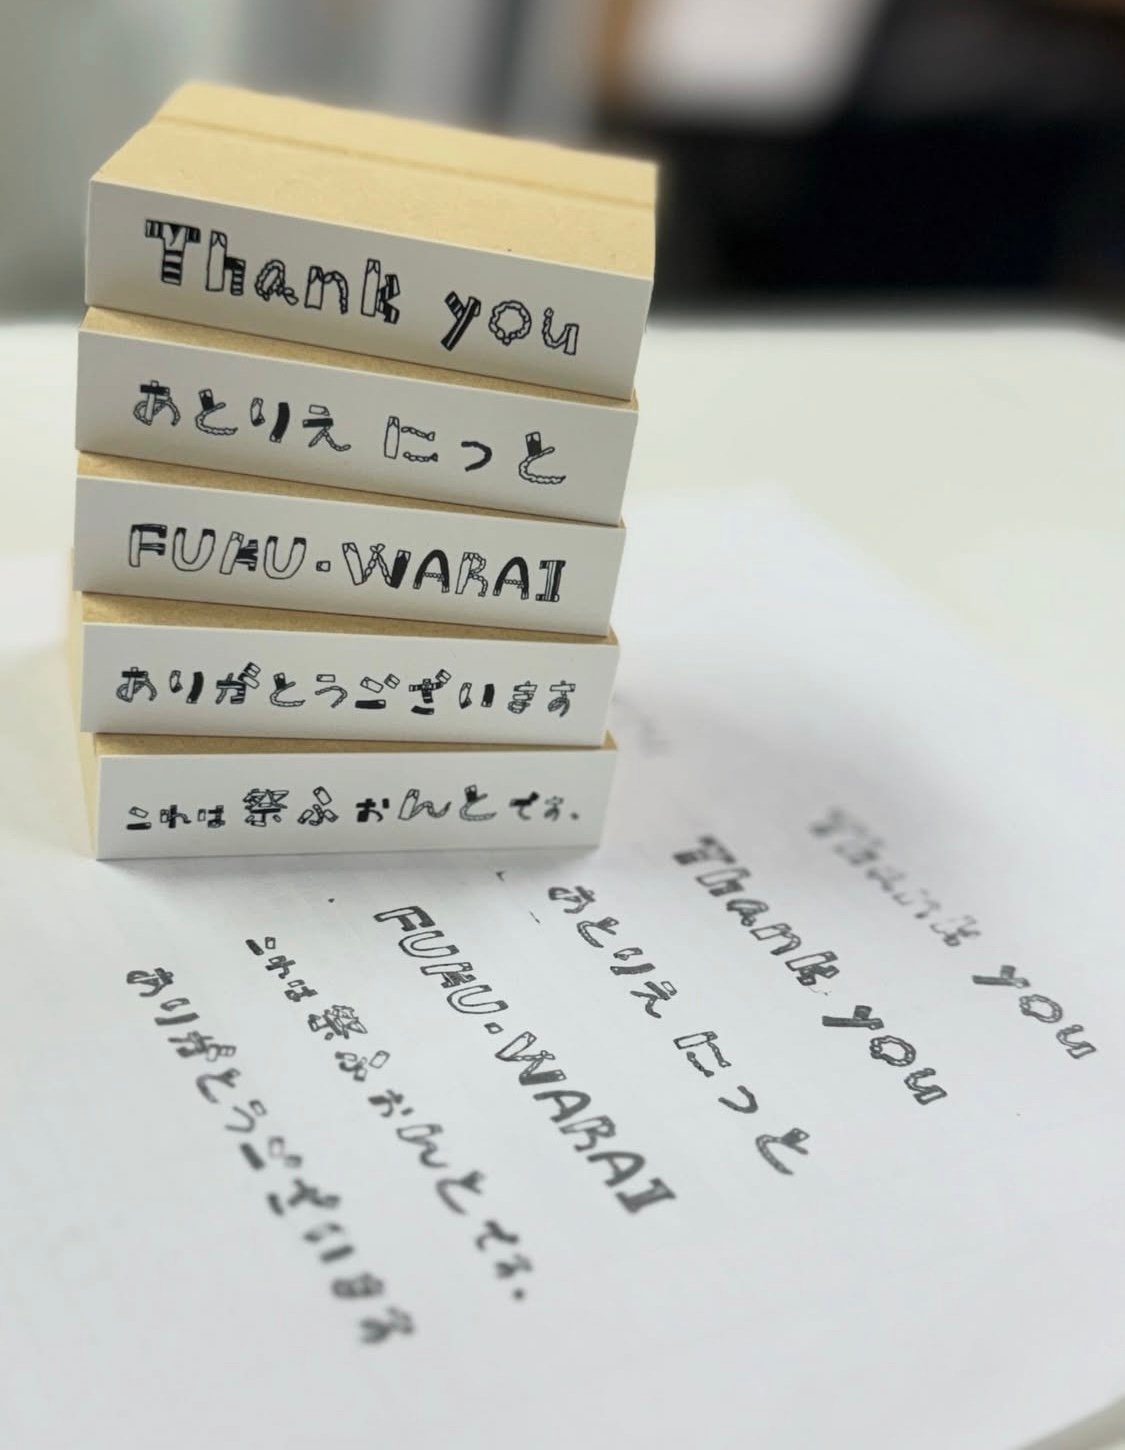 Thank you
あとりえ にっと
FUKU・WARAI
ありがとうございます
これは祭ふぉんとです.
Thank you
Thank you
あとりえ にっと
FUKU・WARAI
これは祭ふぉんとです.
ありがとうございます